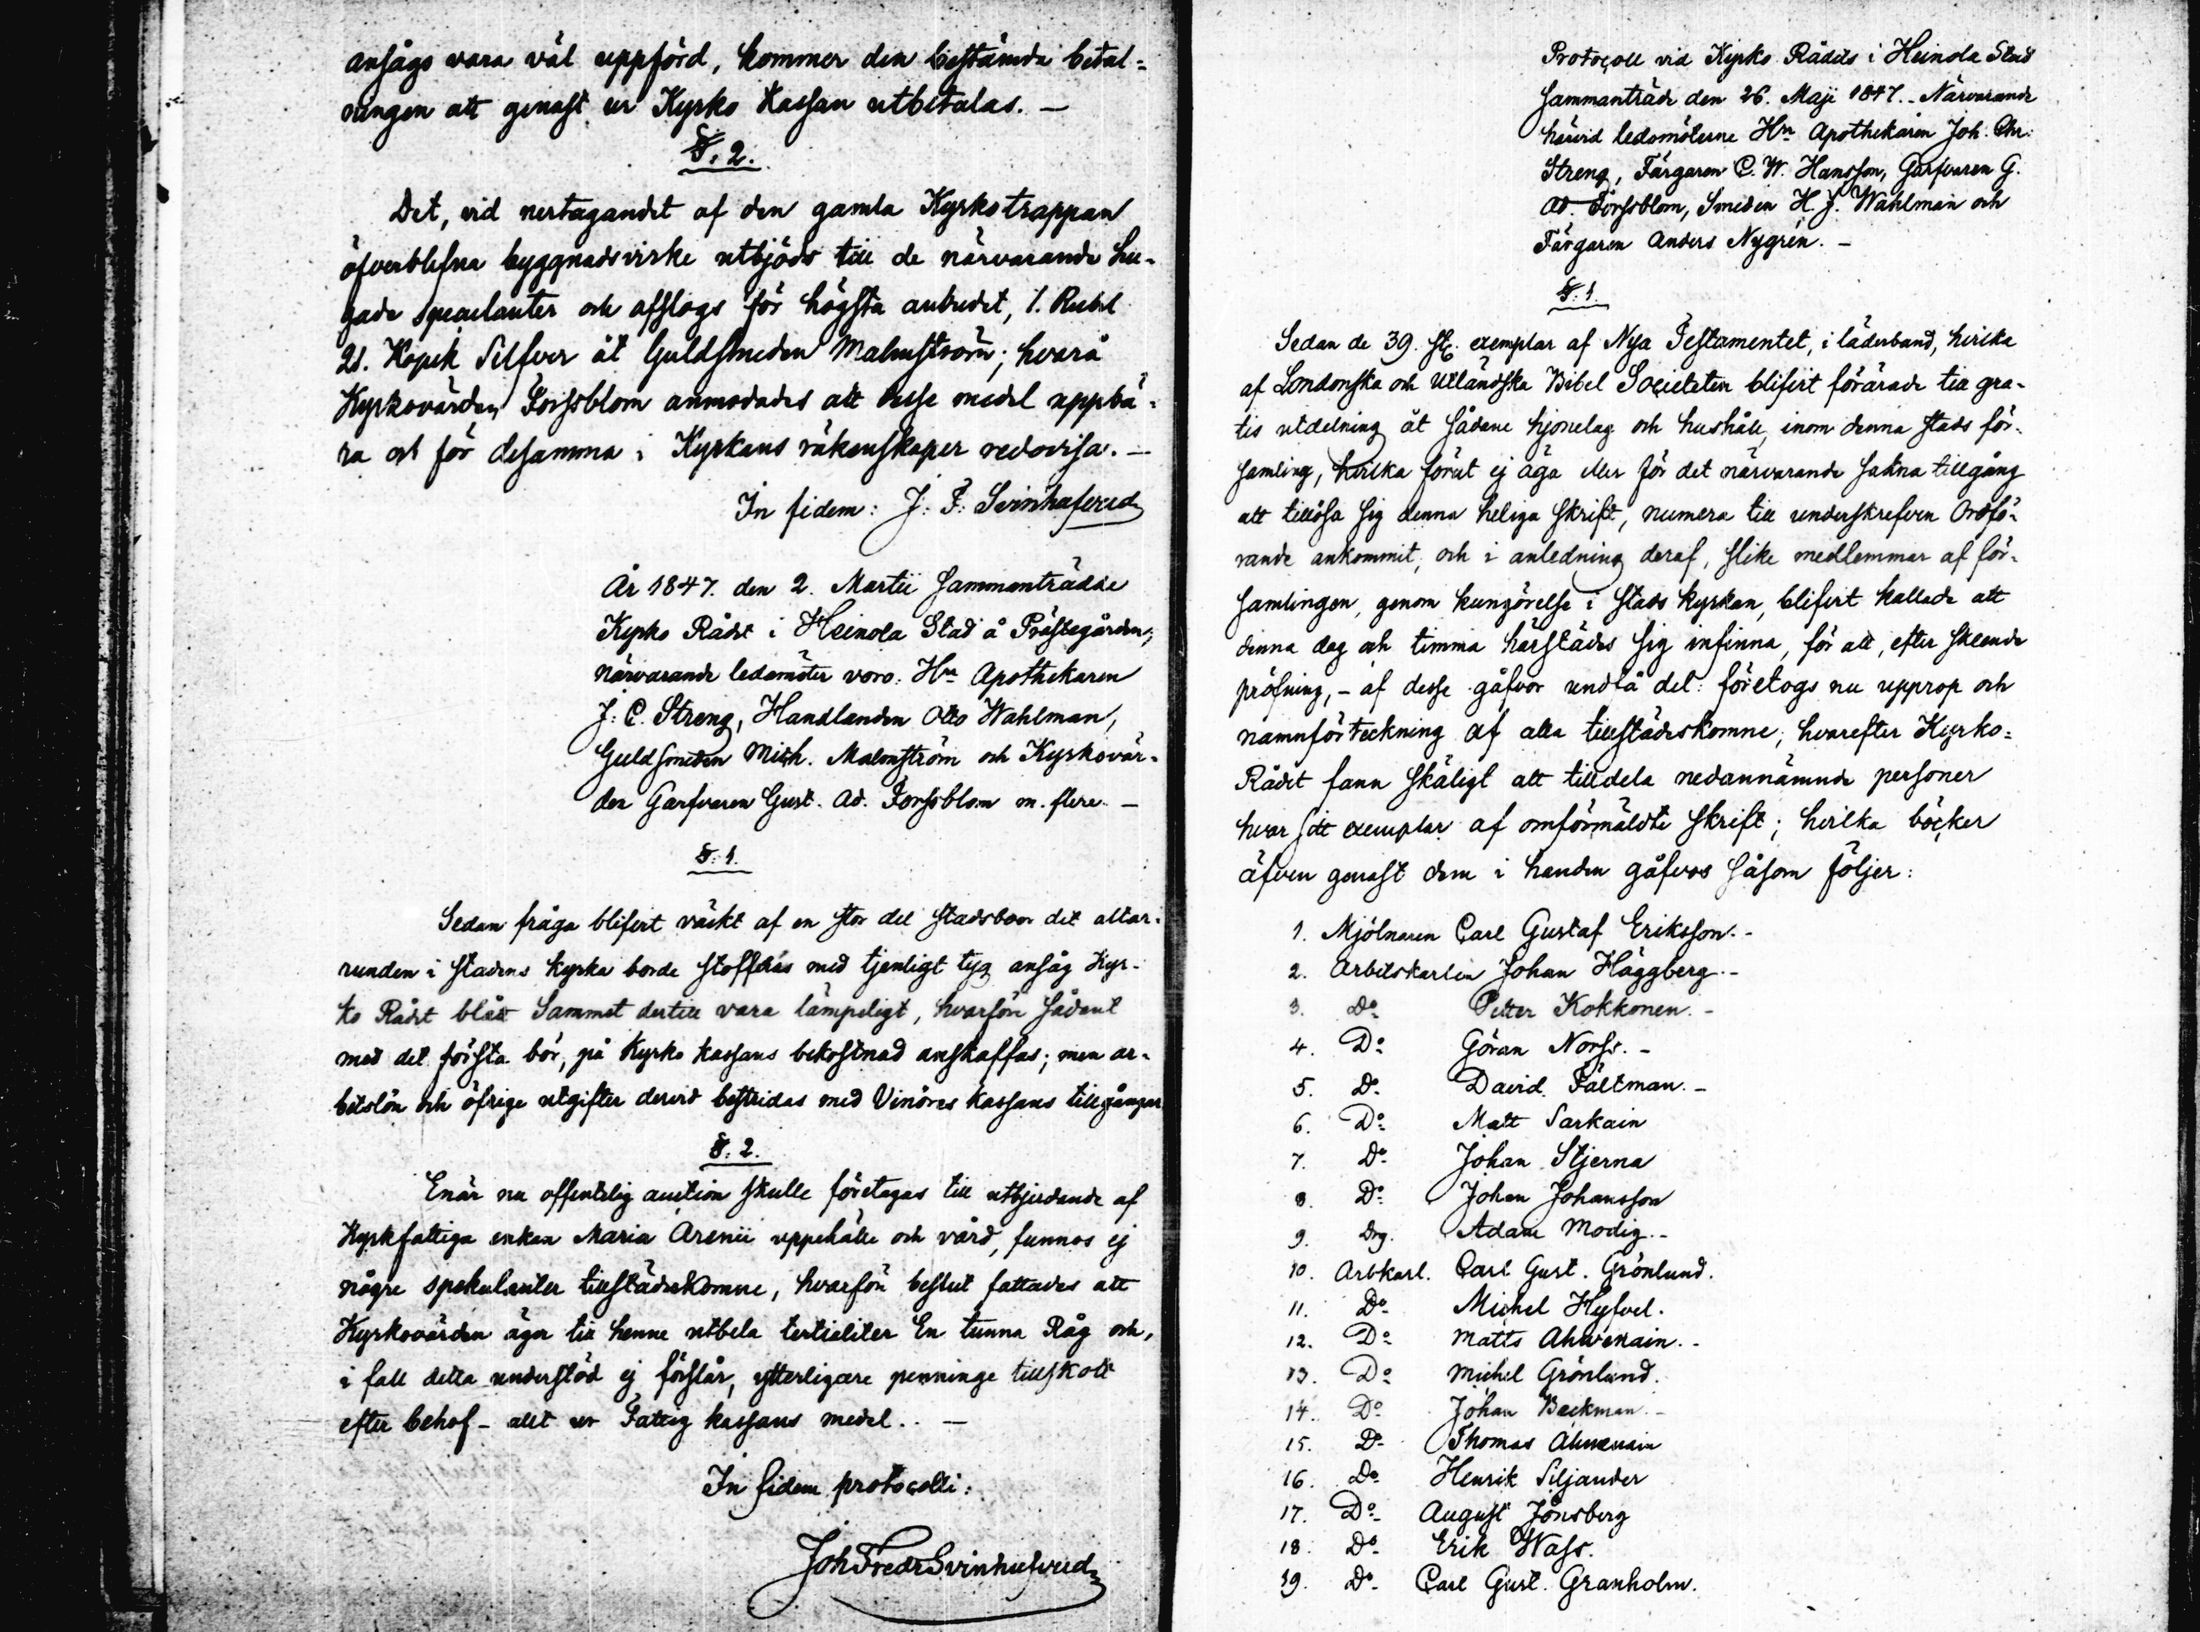 ansågs vara väl uppförd, kommer den bestämda betal-
ningen att genast ur Kyrko Kassan utbetalas. —
§. 2.
Det, vid nertagandet af den gamla Kyrkotrappan
öfverblefna byggnadsvirke utbjöds till de närvarande hu-
gade speculanter och afslogs för högsta anbudet, 1. Rubel
21. Kopek Silfver åt Guldsmeden Malmström; hvarå
Kyrkovärden Forssblom anmodades att desse medel uppbä-
ra och för desamma i Kyrkans räkenskaper redovisa. —
In fidem: J: F: Svinhufvud
År 1847. den 2. Martii sammanträdde
Kyrko Rådet i Heinola Stad å Prästegården;
närvarande ledamöter voro: Hrr Apothekaren
J: C. Streng, Handlanden Otto Wahlman,
Guldsmeden Mich. Malmström och Kyrkovär-
den Garfvaren Gust. Ad. Forssblom m. flere. —
§. 1.
Sedan fråga blifvit väckt af en stor del stadsboer det altar-
runden i stadens kyrka borde stofferas med tjenligt tyg ansåg Kyr-
ko Rådet blått Sammet dertill vara lämpeligt, hvarföre sådant
med det första bör, på Kyrko kassans bekostnad anskaffas; men ar-
betslön och öfrige utgifter dervid bestridas med Vinöres kassans tillgångar
§. 2.
Enär nu offentelig auction skulle företagas till utbjudande af
Kyrkfattiga enkan Maria Arenii uppehälle och vård, funnos ej
någre spekulanter tillstädeskomne, hvarföre beslut fattades att
Kyrkovärden äger till henne utbetala tertialiter En tunna Råg och,
i fall detta understöd ej förslår, ytterligare penninge tillskott
efter behof – allt ur Fattig kassans medel. . —
In fidem protocolli:
Joh Fredr Svinhufvud
Protocoll vid Kyrko Rådets i Heinola Stad
sammanträde den 26. Maji 1847. - Närvarande
härvid ledamöterne Hrr Apothekaren Joh. Chr:
Streng, Färgaren C. W. Hansson, Garfvaren G.
Ad. Forssblom, Smeden H. J. Wahlman och
Färgaren Anders Nygrén. —
§. 1.
Sedan de 39. st. exemplar af Nya Testamentet, i läderband, hvilka
af Londonska och Utländska Bibel Societeten blifvit förärade till gra-
tis utdelning åt sådane hjonelag och hushåll, inom denna stads för-
samling, hvilka förut ej äga eller för det närvarande sakna tillgång
att tillösa sig denna heliga skrift, numera till underskrefven Ordfö-
rande ankommit, och i anledning deraf, slike medlemmar af för-
samlingen, genom kungörelse i stads kyrkan, blifvit kallade att
denna dag och timma härstädes sig infinna, för att, efter skeende
pröfning, – af desse gåfvor undfå del: företogs nu upprop och
namnförteckning af alla tillstädeskomne, hvarefter Kyrko-
Rådet fann skäligt att tilldela nedannämnde personer
hvar sitt exemplar af omförmäldte skrift; hvilka böcker
äfven genast dem i handen gåfvos såsom följer:
1. Mjölnaren Carl Gustaf Eriksson. -
2. Arbetskarlen Johan Häggberg. -
3. Do Petter Kokkonen. -
4. Do Göran Norss. -
5. Do David Fältman. -
6. Do Matt Sarkain
7. Do Johan Stjerna
8. Do Johan Johansson
9. Drg. Adam Modig. -
10. Arbkarl. Carl Gust. Grönlund.
11. Do Michel Hyfvel.
12. Do Matts Ahwenain. -
13. Do Michel Grönlund.
14. Do Johan Beckman. -
15. Do Thomas Ahwenain
16. Do Henrik Siljander
17. Do August Jönsberg
18. Do Erik Wass.
19. Do Carl Gust. Granholm.